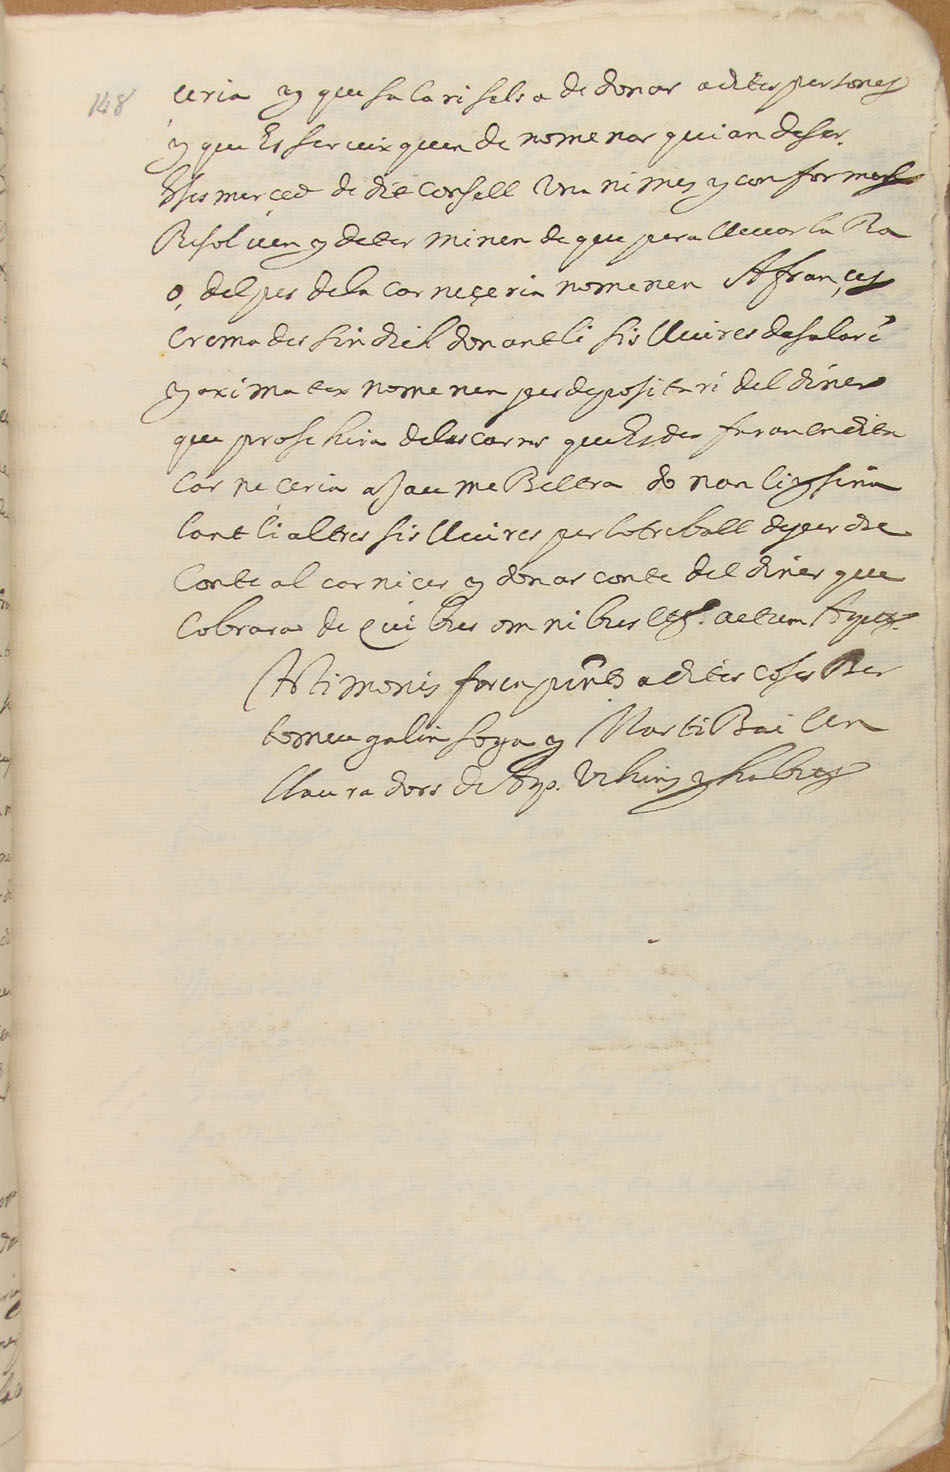 148
ceria y que salari sels a de donar a dites persones
y que Es servixquen de nomenar qui an de ser.
Eses merced de dit Consell Unanimes y conformes
Resolven y determinen de que pera llevar la Ra
o, del pes de la carneçeria nomenen A françes
cremades sindich donantli sis lliures de salari
y aximatex nomenen per depositari del diner
que prosehira de les carns que Es des faran en dita
Carneceria a Jaume Beltra donanli y sina
lantli altres sis lliures per lo treball de perdre
Conte al carnicer y donar conte del diner que
Cobrara de quibus omnibus etc. actum Aspe etc.
Testimonis foren pnts a dites coses Ber
tomeu galinsoga y Marti Bailen
llauradors de Asp. vehins y habits